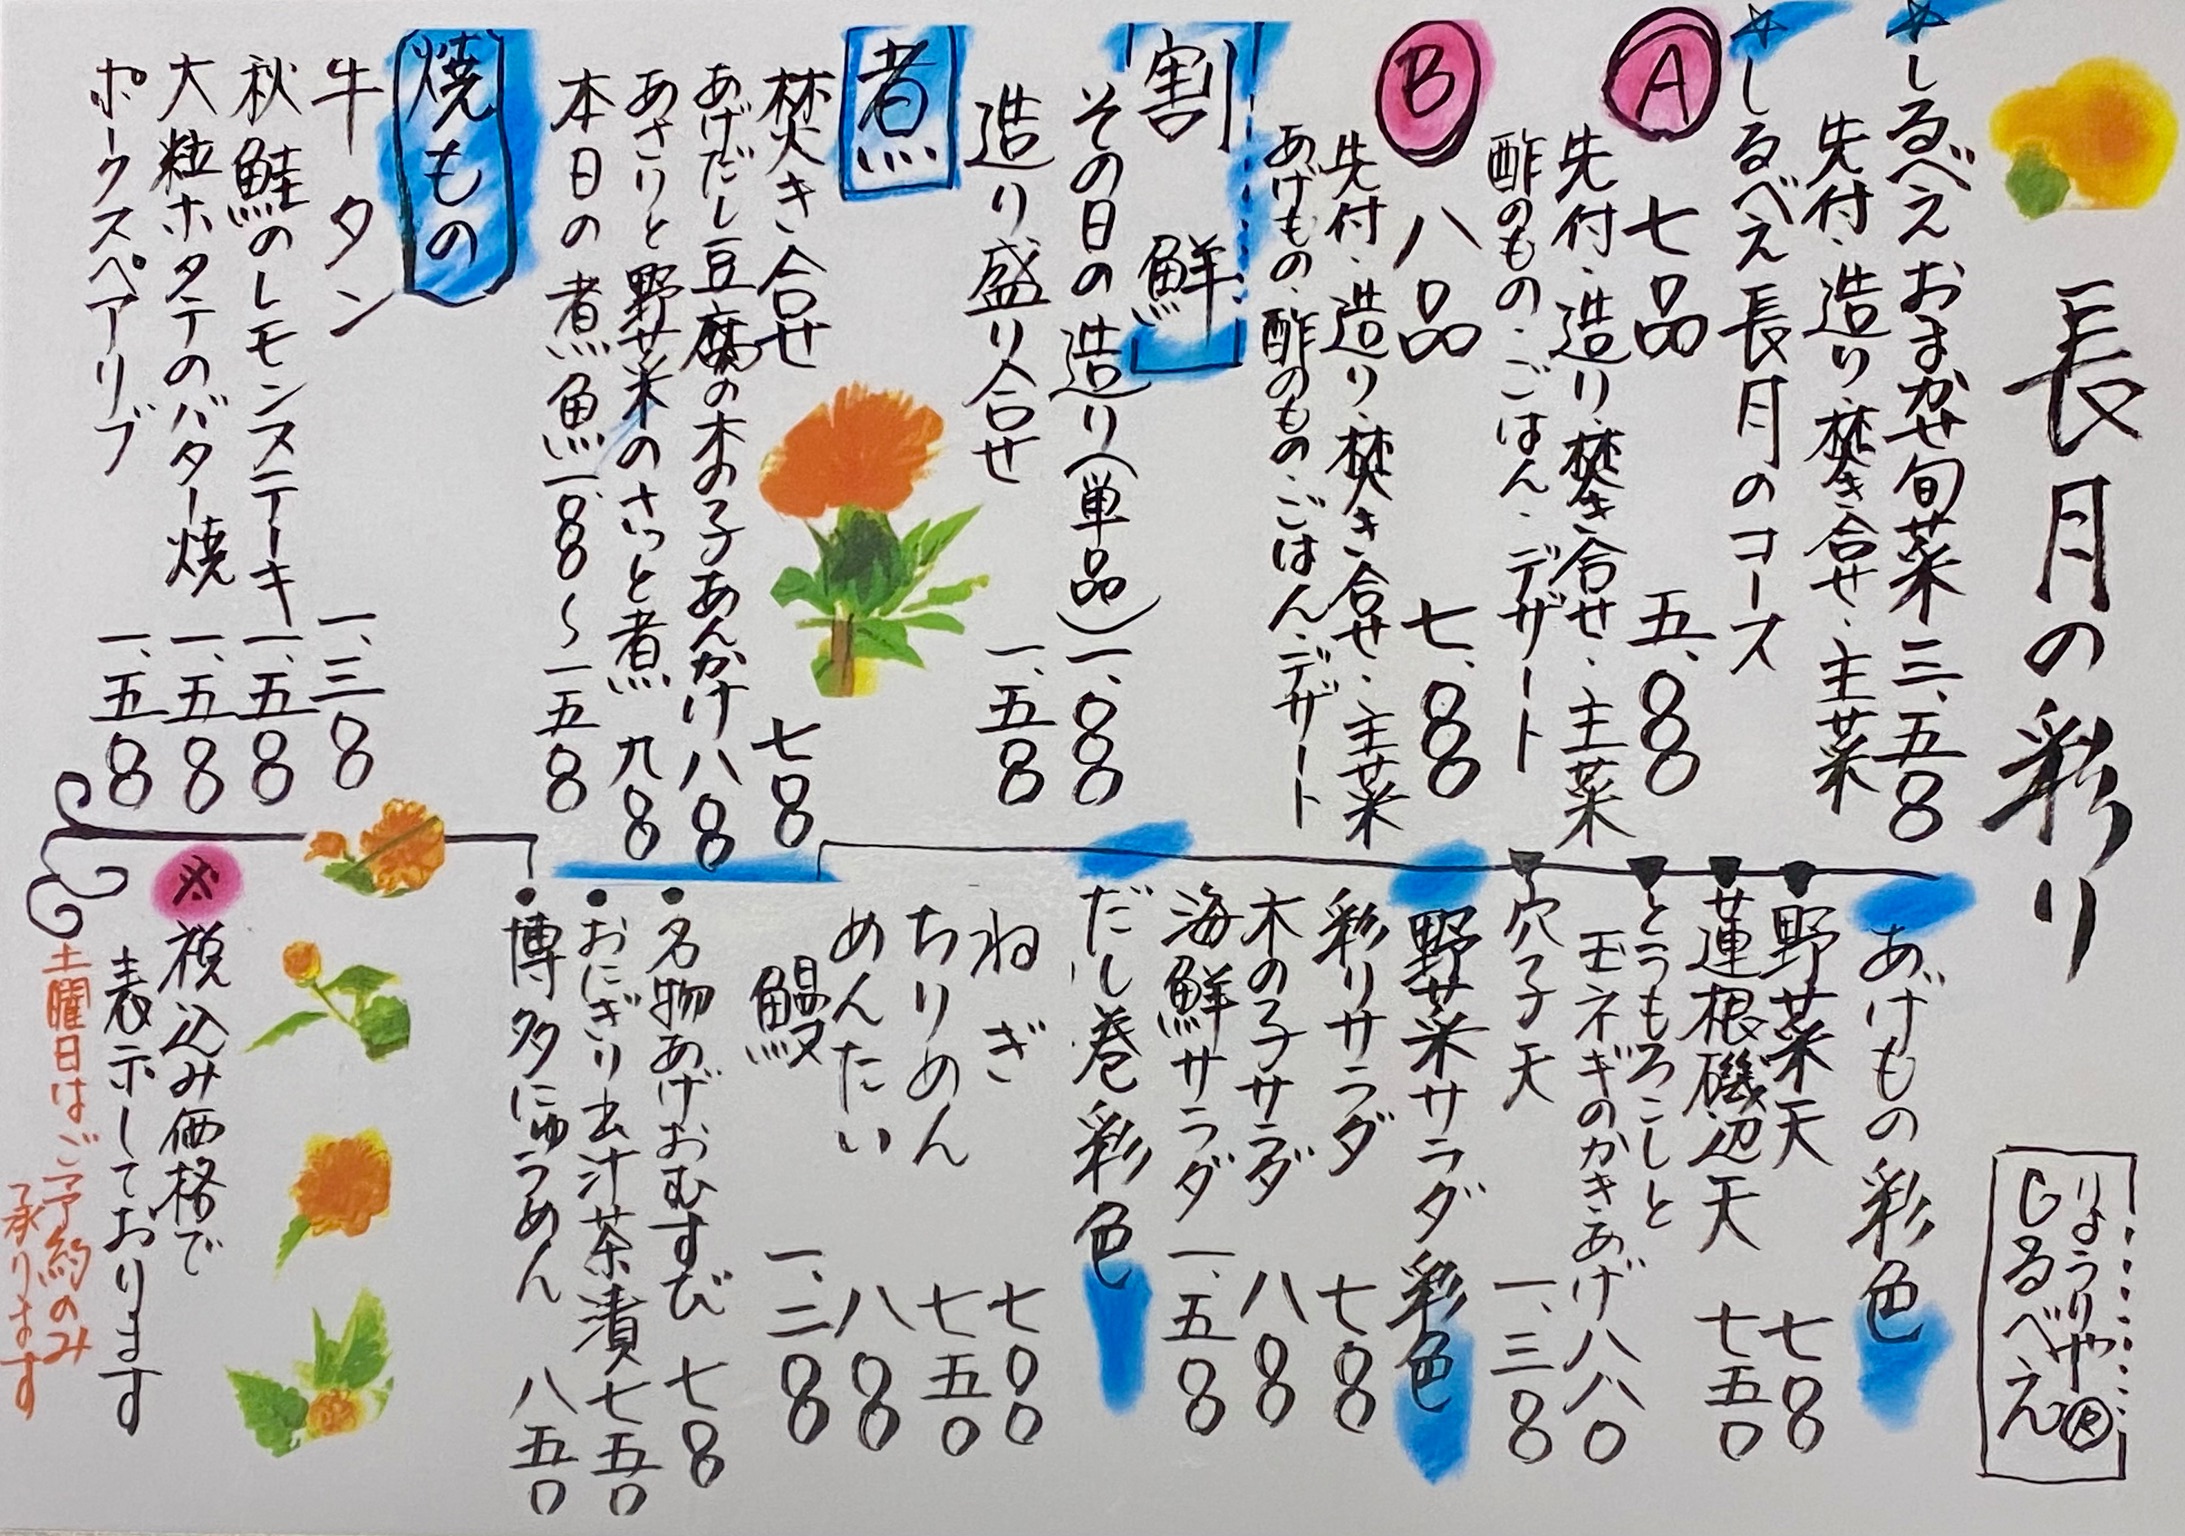 長月の彩り
りょうりや®
しるべえ
☆しるべえおまかせ旬菜 三、五〇〇
先付・造り・焚き合せ・主菜
☆しるべえ長月のコース
Ⓐ 七品 五、〇〇〇
先付・造り・焚き合せ・主菜
酢のもの・ごはん・デザート
Ⓑ 八品 七、〇〇〇
先付・造り・焚き合せ・主菜
あげもの・酢のもの・ごはん・デザート
割鮮
その日の造り(単品) 一、〇〇〇
造り盛り合せ 一、五〇〇
煮
焚き合せ 七〇〇
あげだし豆腐の木の子あんかけ 八〇〇
あさりと野菜のさっと煮 九〇〇
本日の煮魚 一、〇〇〇〜一五〇〇
焼もの
牛タン 一、三〇〇
秋鮭のレモンステーキ 一、五〇〇
大粒ホタテのバター焼 一、五〇〇
ポークスペアリブ 一、五〇〇
あげもの彩色
野菜天 七〇〇
蓮根磯辺天 七五〇
とうもろこしと
玉ネギのかきあげ 八八〇
穴子天 一、三〇〇
野菜サラダ彩色
彩りサラダ 七〇〇
木の子サラダ 八〇〇
海鮮サラダ 一、五〇〇
だし巻彩色
ねぎ 七〇〇
ちりめん 七五〇
めんたい 八〇〇
鰻 一、二〇〇
・名物あげおむすび 七〇〇
・おにぎり出汁茶漬 七五〇
・博多にゅうめん 八五〇
※税込み価格で
表示しております
土曜日はご予約のみ
承ります